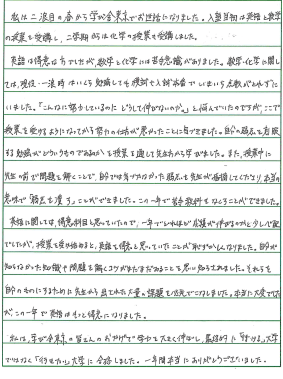 私は二浪目の春から学び舎東京でお世話になりました。入塾当初は英語と数学
の授業を受講し、二学期からは化学の授業も受講しました。
英語は得意な方でしたが、数学と化学には苦手意識がありました。数学・化学に関し
ては、現役・一浪時はいくら勉強しても模試や入試本番でしまいち点数がとれずに
いました。「こんなに努力しているのにどうして伸びないのか」と悩んでいたのですが、ここで
授業を受けるようになってから努力の仕方が悪かったことに気づきました。自分の弱点を克服
する勉強がどういうものであるのかを授業を通して先生方から学びました。また、授業中に
先生の前で問題を解くことで、自分では気づかなかった弱点を先生が指摘してくださり、本当の
意味で「弱点を潰す」ことができました。この一年で苦手教科をなくすことができました。
英語に関しては、得意科目と思っていたので、一年でどれほど成績が伸びるのかと少し心配
でしたが、授業を受け始めると、英語を得意と思っていたことが恥ずかしくなりました。自分が
知らなかった知識や問題を解くコツがまだまだあることを思い知らされました。それらを
自分のものにするために先生から出された大量の課題を必死でこなしました。本当に大変でした
がこの一年で英語はもっと得意になりました。
私は、学び舎東京の皆さんのおかげで学力を大きく伸ばし、最終的に「行ける」大学
ではなく「行きたい」大学に合格しました。一年間本当にありがとうございました。